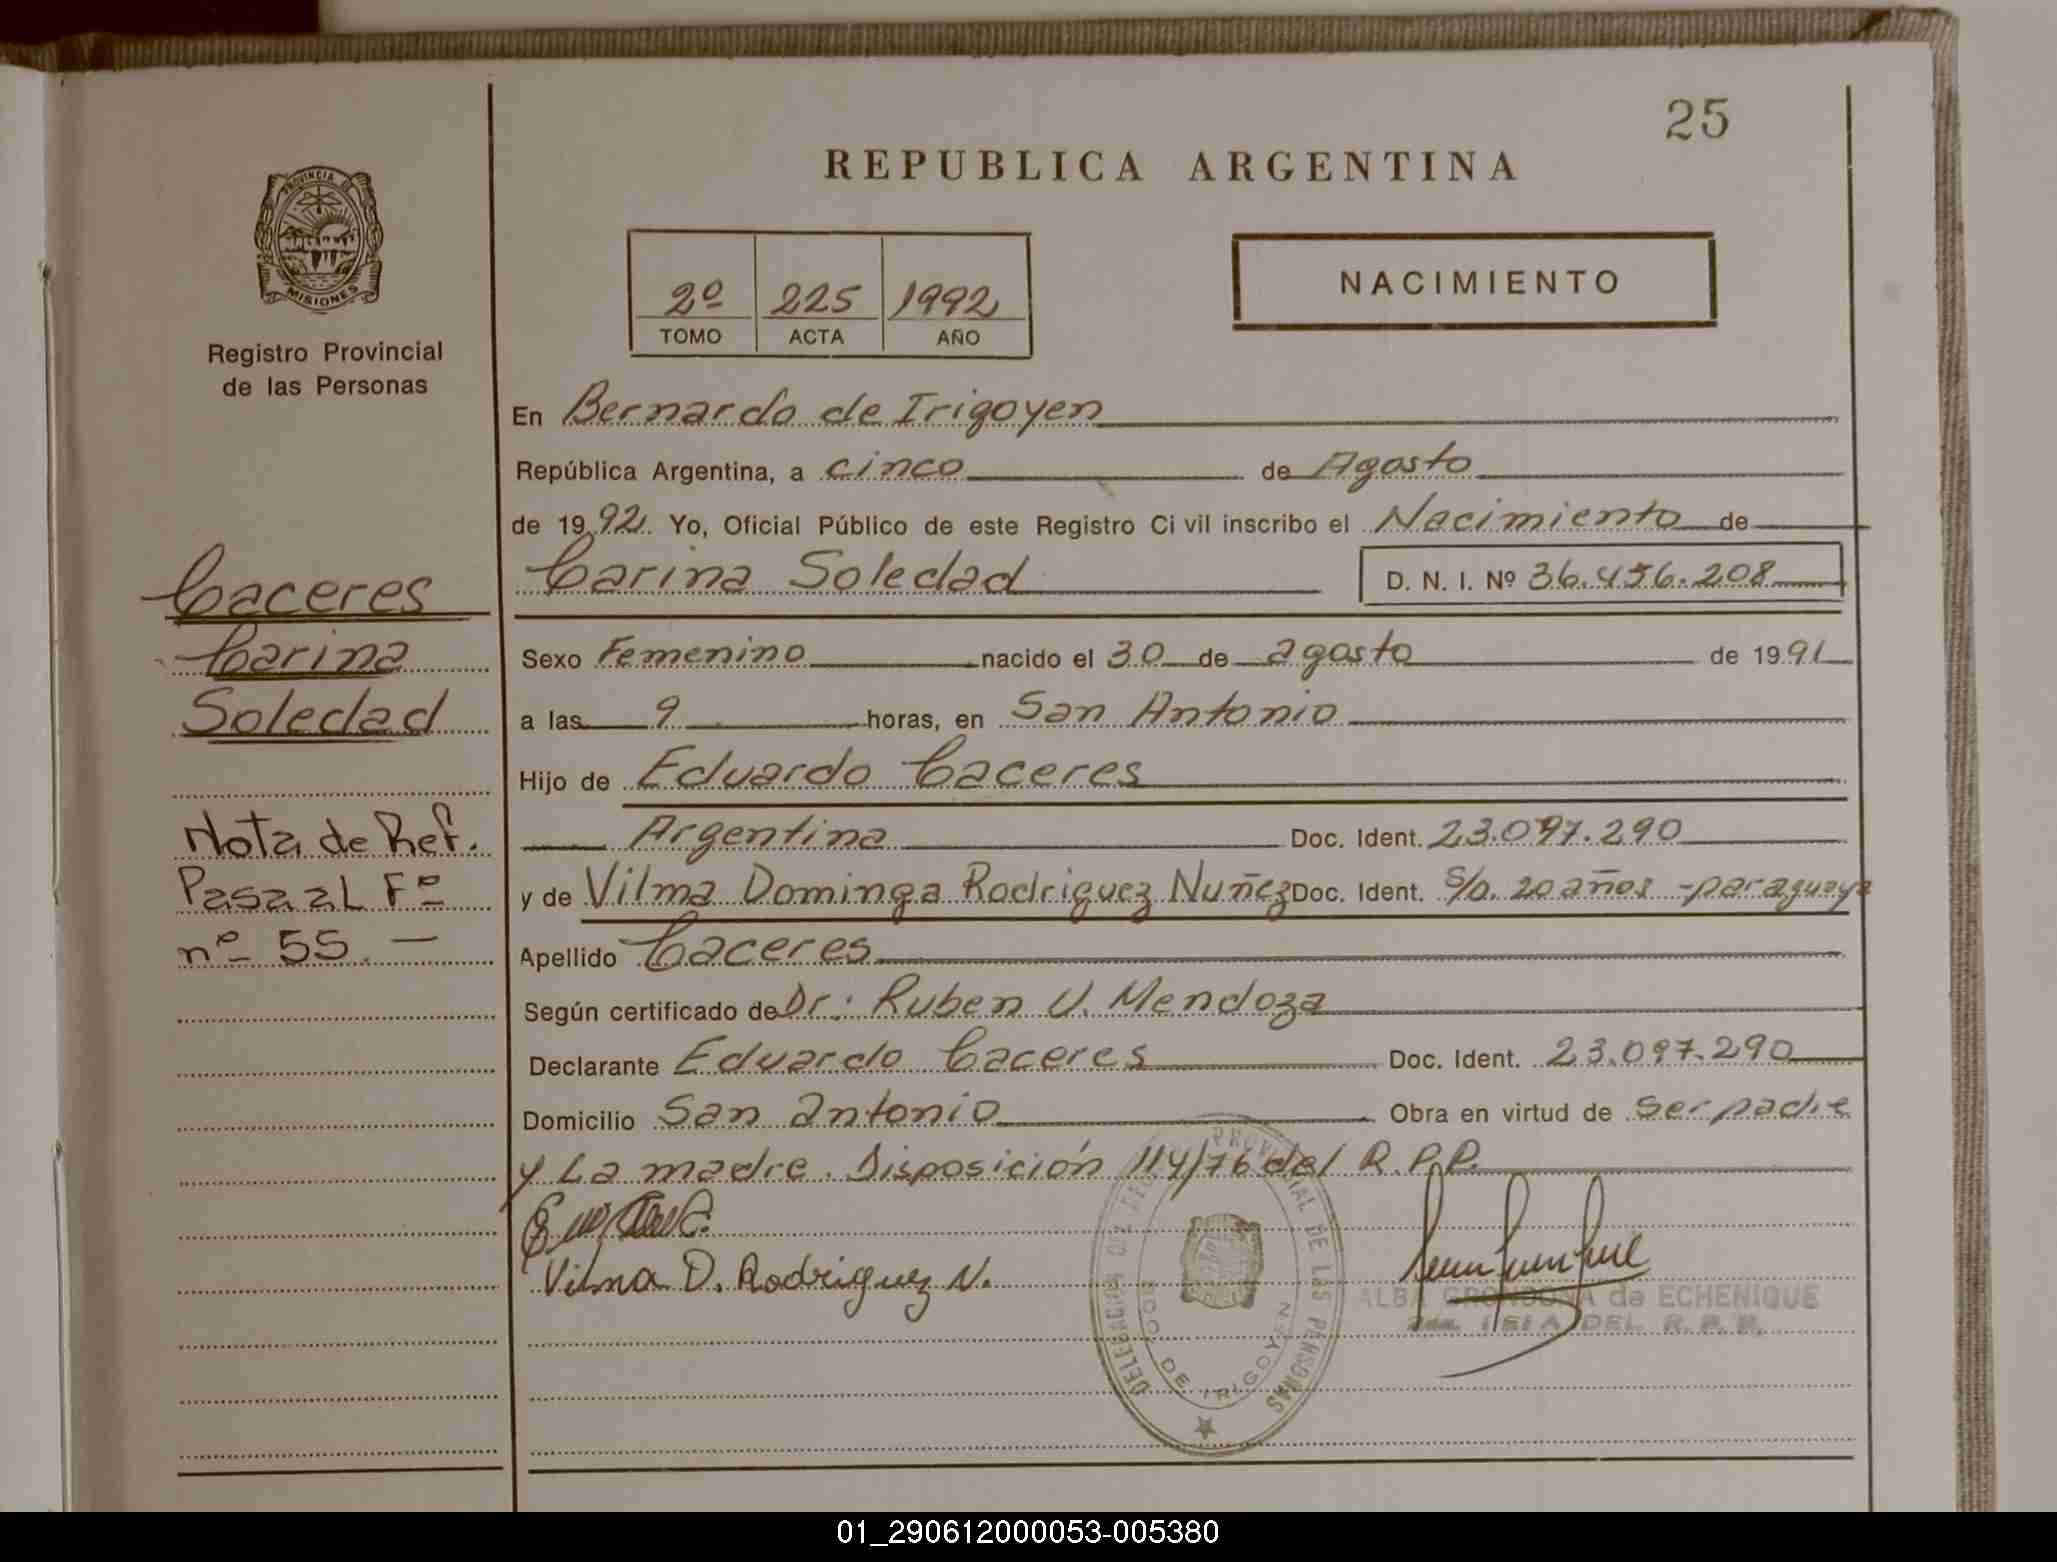 25
REPUBLICA ARGENTINA
PROVINCIA DE
MISIONES
Registro Provincial
de las Personas
2º 225 1992
TOMO ACTA AÑO
NACIMIENTO
En Bernardo de Irigoyen
República Argentina, a cinco de Agosto
de 1992. Yo, Oficial Público de este Registro Ci vil inscribo el Nacimiento de
Carina Soledad D. N. I. Nº 36.456.208
Sexo Femenino nacido el 30 de agosto de 1991
a las 9 horas, en San Antonio
Hijo de Eduardo Caceres
Argentina Doc. Ident. 23.097.290
y de Vilma Dominga Rodriguez Nuñez Doc. Ident. S/D. 20 años - paraguaya
Apellido Caceres
Según certificado de Dr: Ruben U. Mendoza
Declarante Eduardo Caceres Doc. Ident. 23.097.290
Domicilio San Antonio Obra en virtud de ser padre
y La madre. Disposición 114/76 del R.P.P.
Vilma D. Rodriguez N.
Caceres
Carina
Soledad
Nota de Ref.
Pasa al Fº
nº 55. —
DELEGACION DEL REGISTRO PROVINCIAL DE LAS PERSONAS
BDO. DE IRIGOYEN
ALBA GRONDONA de ECHENIQUE
DEL R. P. P.
01_290612000053-005380